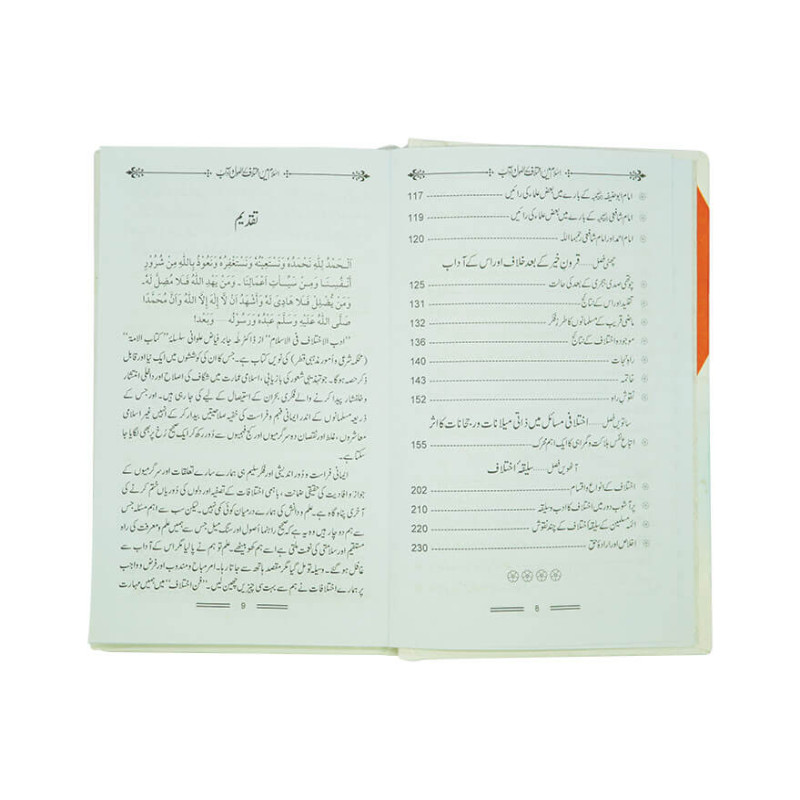 اسلام میں اختلاف کے اصول و آداب
امام ابوحنیفہ کے بارے میں بعض علماء کی رائیں 117
امام شافعی کے بارے میں بعض علماء کی رائیں 119
امام احمد اور امام شافعی رحمہما اللہ 120
چھٹی فصل..... قرون خیر کے بعد خلاف اور اس کے آداب
چوتھی صدی ہجری کے بعد کی حالت 125
تقلید اور اس کے نتائج 131
ماضی قریب کے مسلمانوں کا طرز فکر 132
موجودہ اختلاف کے نتائج 136
راہ نجات 140
خاتمہ 143
نقوش راہ 152
ساتویں فصل..... اختلافی مسائل میں ذاتی میلانات ور جحانات کا اثر
اتباع نفس ہلاکت و گمراہی کا ایک اہم محرک 155
آٹھویں فصل..... سلیقۂ اختلاف
اختلاف کے انواع و اقسام 202
پر آشوب دور میں اختلاف کا ادب و سلیقہ 210
ائمہ مسلمین کے سلیقۂ اختلاف کے چند نقوش 220
اخلاص اور ارادۂ حق 230
8
اسلام میں اختلاف کے اصول و آداب
تقدیم
اَلْحَمْدُ لِلّٰهِ نَحْمَدُهٗ وَنَسْتَعِيْنُهٗ وَنَسْتَغْفِرُهٗ وَنَعُوْذُ بِاللّٰهِ مِنْ شُرُوْرِ
اَنْفُسِنَا وَمِنْ سَيِّاٰتِ اَعْمَالِنَا ۔ وَمَنْ يَهْدِ اللّٰهُ فَلَا مُضِلَّ لَهٗ۔
وَمَنْ يُّضْلِلْ فَلَا هَادِيَ لَهٗ وَاَشْهَدُ اَنْ لَا اِلٰهَ اِلَّا اللّٰهُ وَاَنَّ مُحَمَّدًا
صَلَّى اللّٰهُ عَلَيْهِ وَسَلَّمَ عَبْدُهٗ وَرَسُوْلُهٗ ... وَبَعْدُ!
”ادب الاختلاف فی الاسلام“ از ڈاکٹر طٰہٰ جابر فیاض علوانی سلسلۂ ”کتاب الامۃ“
(محکمہ شرعی و اُمور مذہبی قطر) کی نویں کتاب ہے۔ جس کا ان کی کوششوں میں ایک نیا اور قابل
ذکر حصہ ہوگا۔ جو تہذیبی شعور کی بازیابی، اسلامی عمارت میں شگاف کی اصلاح اور داخلی انتشار
وخلفشار پیدا کرنے والے فکری بحران کے استیصال کے لیے کی جارہی ہیں۔ اور جس کے
ذریعہ مسلمانوں کے اندر ایمانی فہم و فراست کی خفیہ صلاحیتیں بیدار کرکے انھیں غیر اسلامی
معاشروں، غلط اور نقصان دہ سرگرمیوں اور کج فہمیوں سے دُور رکھ کر ایک صحیح رُخ پر بھی لگایا جا
سکتا ہے۔
ایمانی فراست و دُور اندیشی اور فکر سلیم ہی ہمارے سارے تعلقات اور سرگرمیوں کے
جواز و افادیت کی حقیقی ضمانت، باہمی اختلافات کے تصفیہ اور دلوں کی دُوریاں ختم کرنے کی
آخری پناہ گاہ ہے۔ علم و دانش کی ہمارے درمیان کوئی کمی نہیں۔ لیکن سب سے اہم مسئلہ جس
سے ہم دوچار ہیں وہ یہ ہے کہ صحیح راہنما اُصول اور سنگ میل جس سے ہمیں علم و معرفت کی راہ
مستقیم اور سلامتی کی قوت ملتی ہے اسے ہم کھو بیٹھے۔ علم تو ہم نے پالیا مگر اس کے آداب سے
غافل ہو گئے۔ وسیلہ تو مل گیا مگر مقصد ہاتھ سے جاتا رہا۔ امر مباح و مندوب اور فرض و واجب
پر ہمارے اختلافات نے ہم سے بہت سی چیزیں چھین لیں۔ ”فن اختلاف“ میں ہمیں مہارت
9